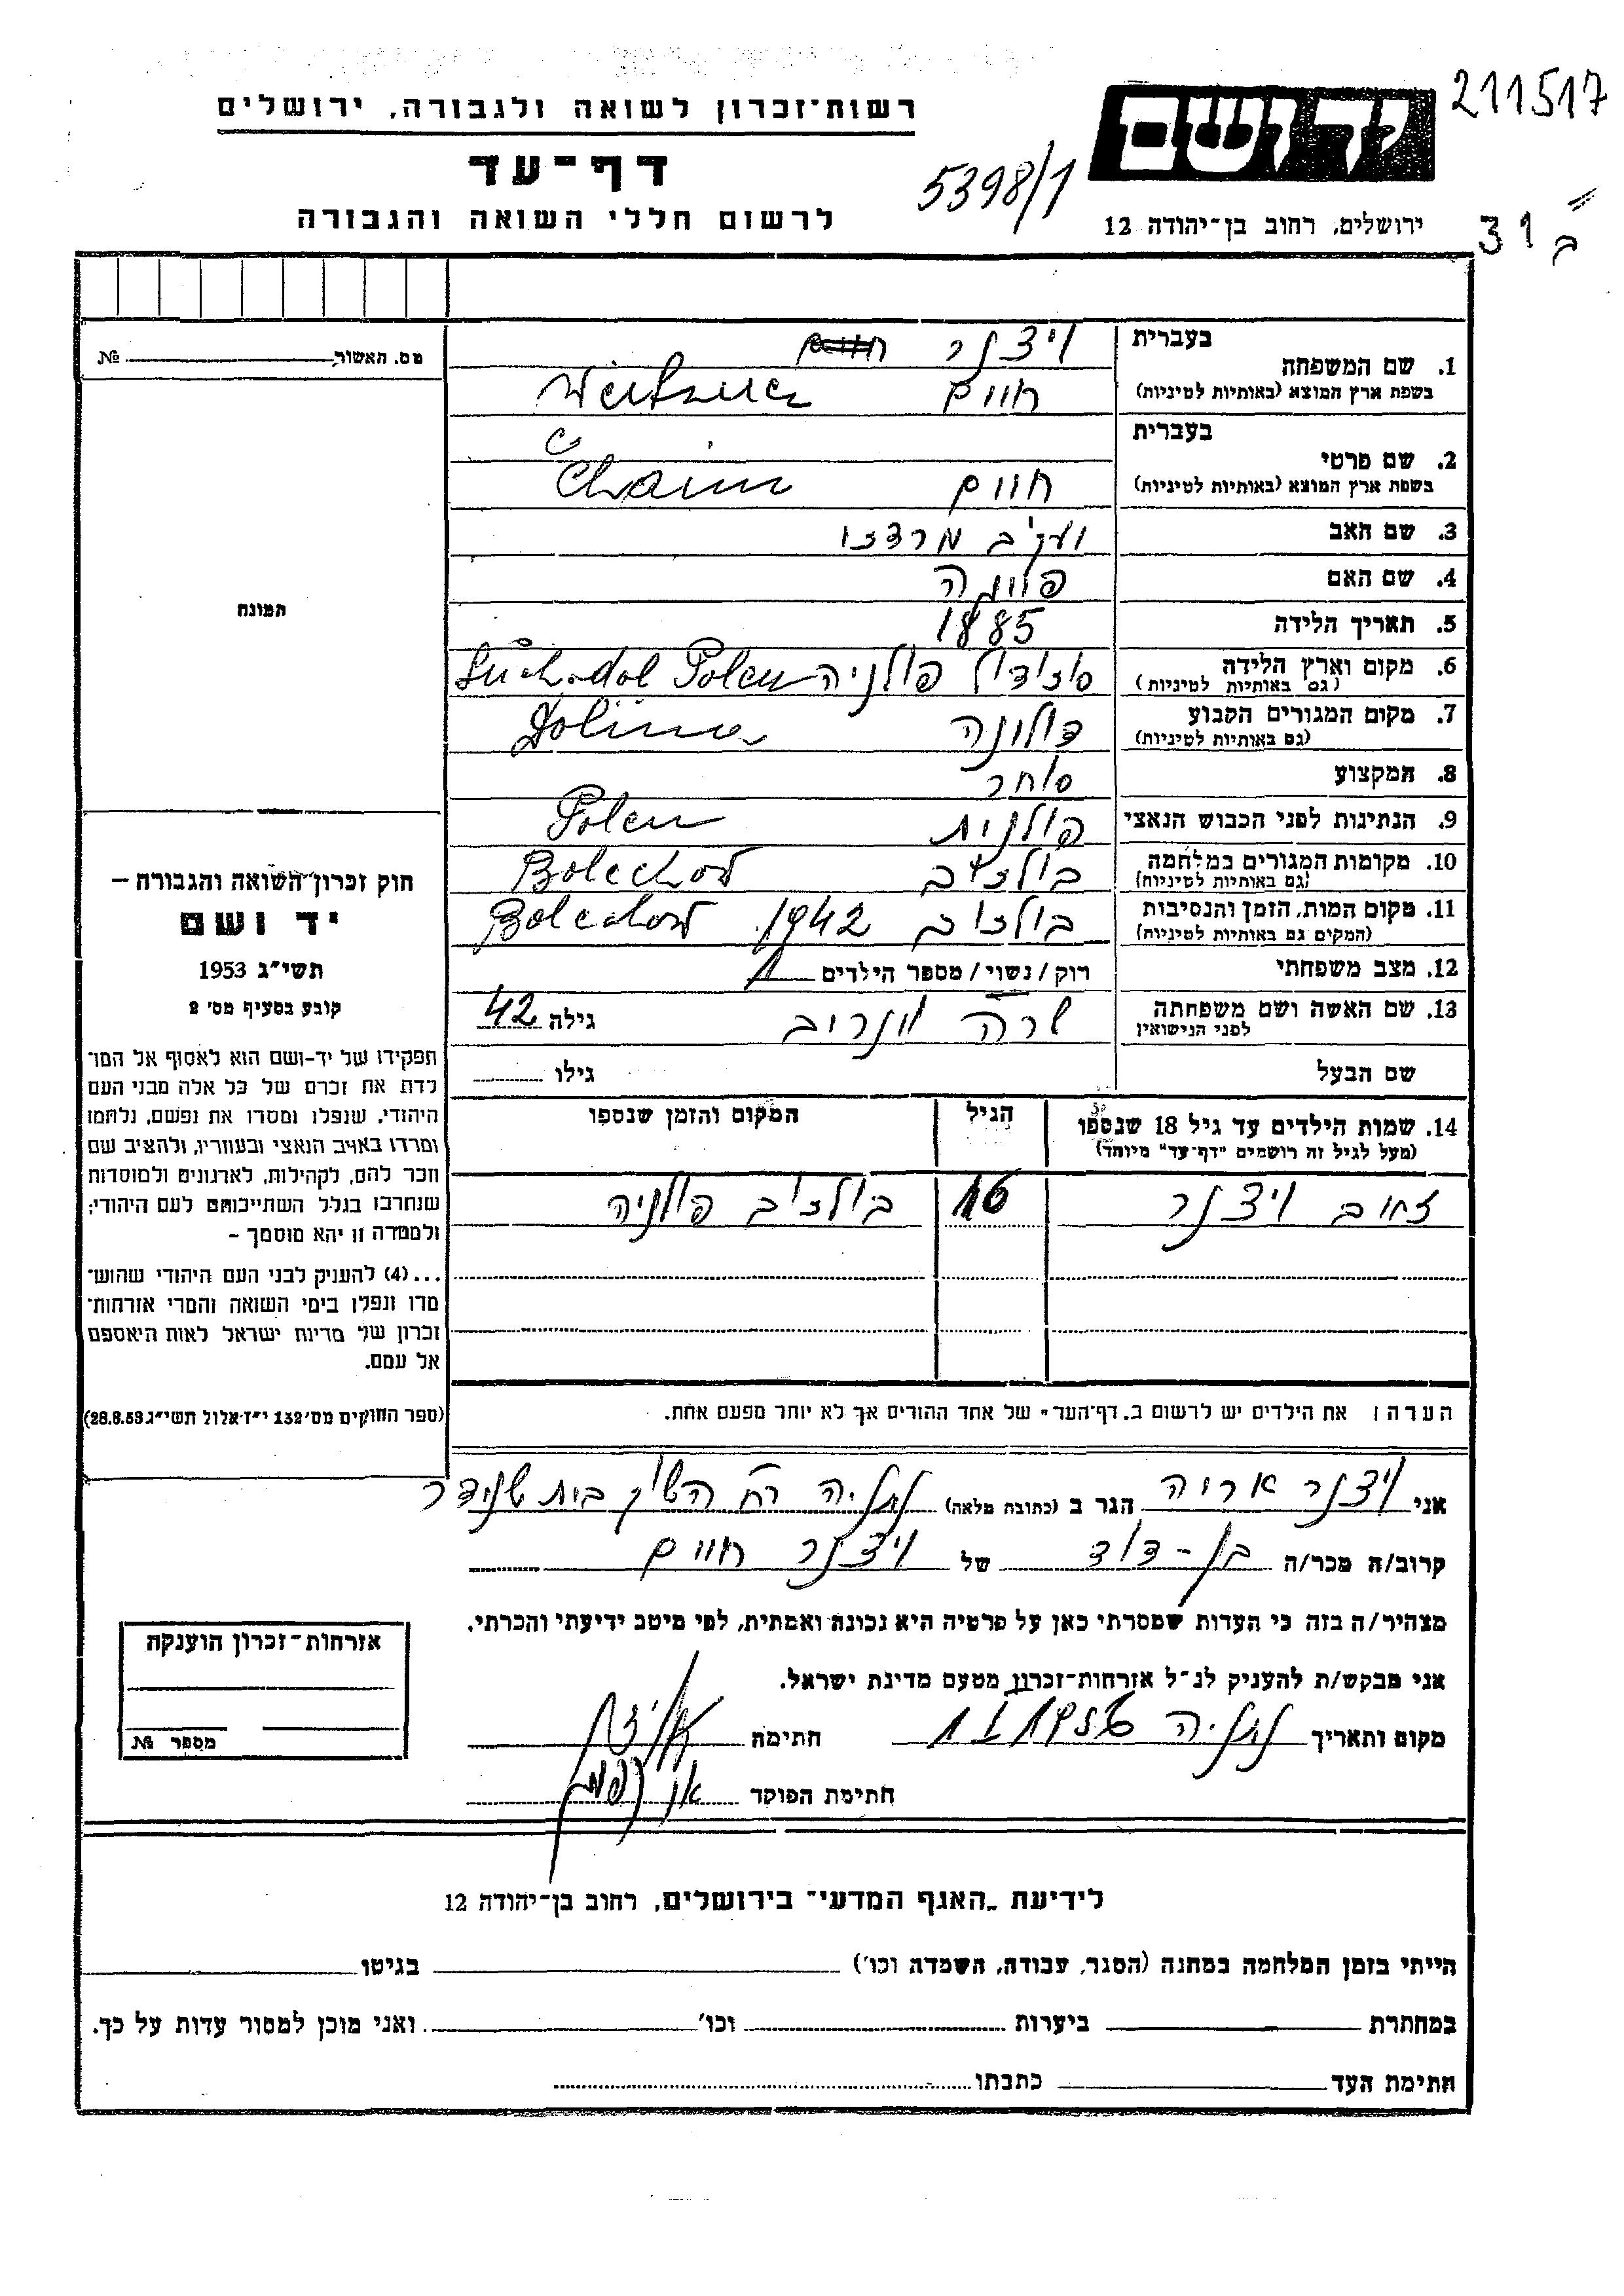 211517
רשות־זכרון לשואה ולגבורה, ירושלים
ידושם
דף־עד
5398/1
לרשום חללי השואה והגבורה
ירושלים, רחוב בן־יהודה 12
31 ב
מס. האשור № 
1. שם המשפחה
בעברית ויצנר
בשפת ארץ המוצא (באותיות לטיניות) חיים
2. שם פרטי
בעברית
בשפת ארץ המוצא (באותיות לטיניות) חיים Chaim
3. שם האב יעקב
4. שם האם
5. תאריך הלידה 1885
6. מקום וארץ הלידה (גם באותיות לטיניות) פולניה Suchodol Polen
7. מקום המגורים הקבוע (גם באותיות לטיניות) דולינה Dolina
8. המקצוע סוחר
9. הנתינות לפני הכבוש הנאצי פולנית Polen
10. מקומות המגורים במלחמה (גם באותיות לטיניות) בולכוב Bolechov
11. מקום המות, הזמן והנסיבות (המקום גם באותיות לטיניות) בולכוב 1942 Bolechov
12. מצב משפחתי רוק/נשוי/מספר הילדים 1
13. שם האשה ושם משפחתה לפני הנישואין שרה גילה 42
שם הבעל גילו
14. שמות הילדים עד גיל 18 שנספו
(מעל לגיל זה רושמים "דף־עד" מיוחד)
הגיל
המקום והזמן שנספו
ויצנר 16 בולכוב פולניה
הערה: את הילדים יש לרשום ב.דף־העד" של אחד ההורים אך לא יותר מפעם אחת.
תמונה
חוק זכרון השואה והגבורה –
יד ושם
תשי״ג 1953
קובע בסעיף מס׳ 2
תפקידו של יד-ושם הוא לאסוף אל המו־
לדת את זכרם של כל אלה מבני העם
היהודי, שנפלו ומסרו את נפשם, נלחמו
ומרדו באויב הנאצי ובעוזריו, ולהציב שם
וזכר להם, לקהילות, לארגונים ולמוסדות
שנחרבו בגלל השתייכותם לעם היהודי;
ולמטרה זו יהא מוסמך –
...(4) להעניק לבני העם היהודי שהוש־
מדו ונפלו בימי השואה והמרי אזרחות־
זכרון של מדינת ישראל לאות היאספם
אל עמם.
(ספר החוקים מס׳ 132 י״ז אלול תשי״ג 28.8.53)
אני ויצנר אריה הגר ב (כתובת מלאה) נתניה רח השוק בית שניידר
קרוב/ה מכר/ה בן-דוד של ויצנר חיים
מצהיר/ה בזה כי העדות שמסרתי כאן על פרטיה היא נכונה ואמתית, לפי מיטב ידיעתי והכרתי.
אני מבקש/ת להעניק לנ״ל אזרחות-זכרון מטעם מדינת ישראל.
מקום ותאריך נתניה חתימה
חתימת הפוקד
אזרחות־זכרון הוענקה
מספר №
לידיעת „האגף המדעי" בירושלים, רחוב בן־יהודה 12
הייתי בזמן המלחמה במחנה (הסגר, עבודה, השמדה וכו׳) בגיטו
במחתרת ביערות וכו׳ ואני מוכן למסור עדות על כך.
חתימת העד כתבתו